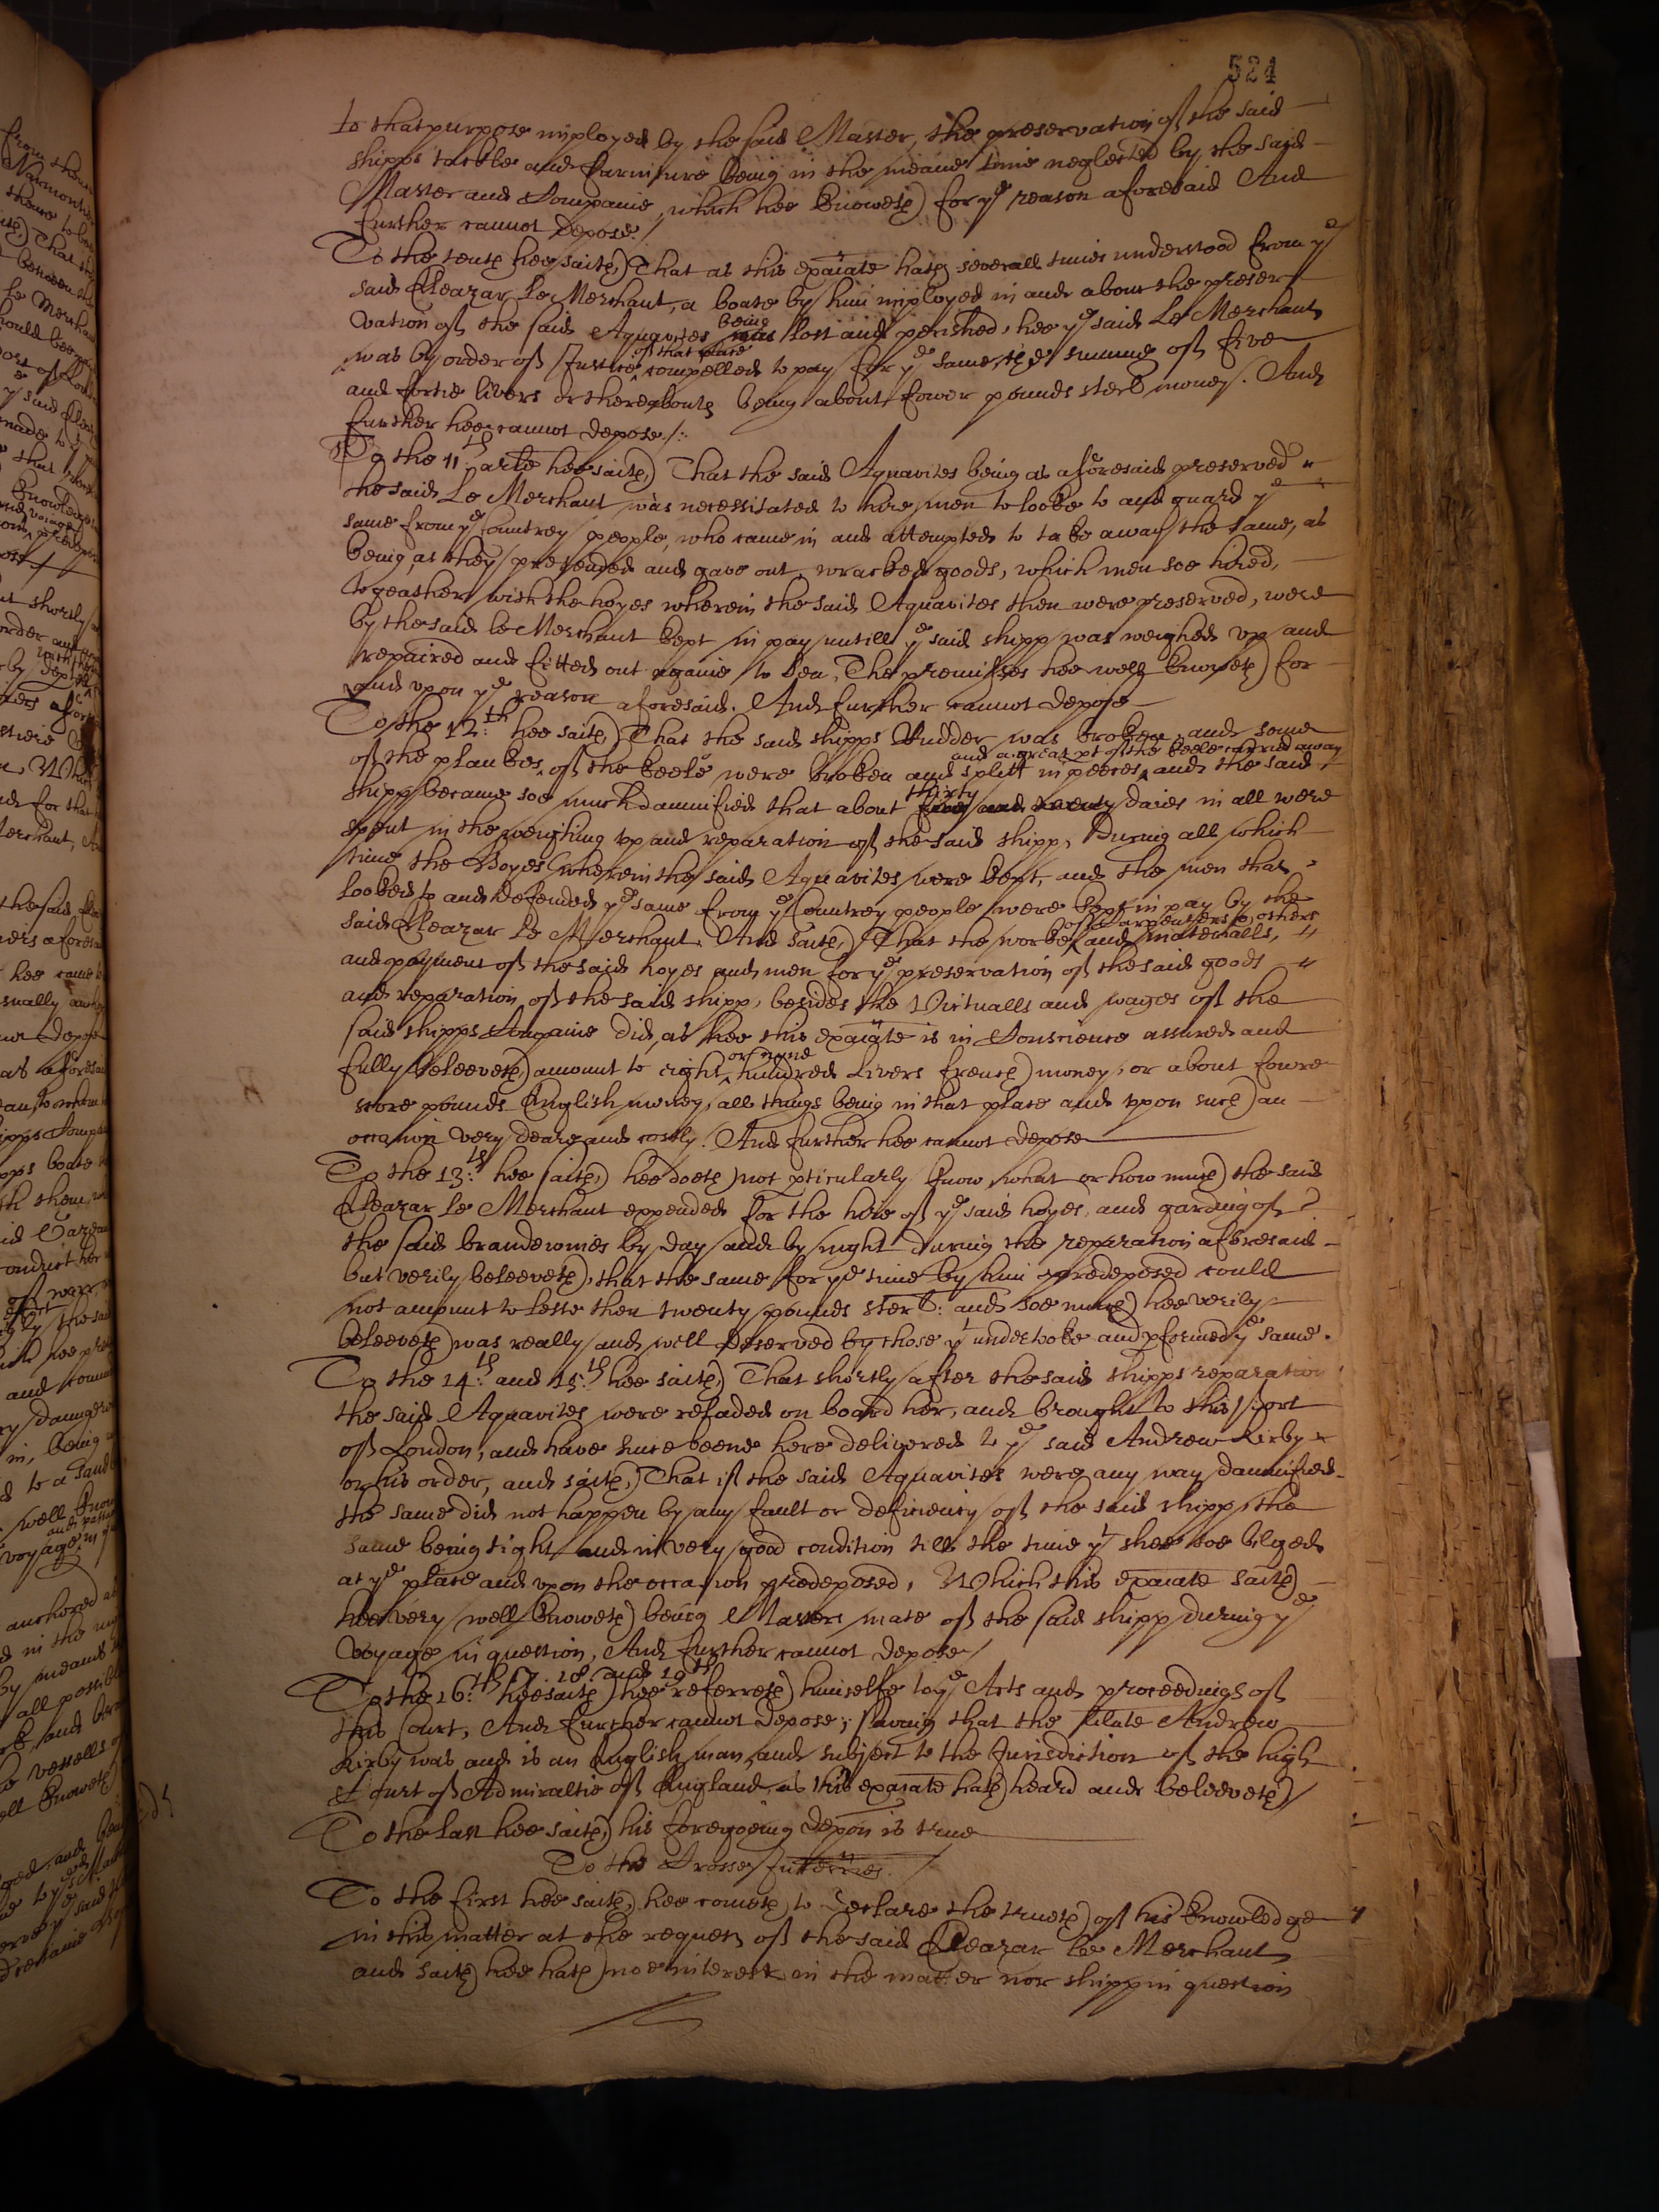 524
to that purpose imployed by the said Master, the preservation of the said
shipps tackle and furniture being in the meane time neglected by the said
Master and Companie, which hee knoweth for ye reason aforesaid And
further cannot depose./
To the tenth hee saith, That as this exãiate hath severall times understood from ye
said Eleazar Le Merchant, a boate by him imployed in and about the preser
vation of the said Aquavites was being lost and perished, hee ye said Le Merchant
was by order of Justice of that place compelled to pay for ye same, the summe of five
and fortie livers or thereabouts being about fower pounds sterl money. And
further hee cannot depose./:
To the 11th arle hee saith, That the said Aquavites being as aforesaid preserved
the said Le Merchant was necessitated to hire men to looke to and guard ye
same from ye Countrey people, who came in and attempted to take away the same, as
being, as they pretended and gave out, wracked goods, which men soe hired,
togeather with the hoyes wherein the said Aquavites then were preserved, were
by the said le Merchant kept in pay untill ye said shipp was weighed vp and
repaired and fitted out againe to sea, The premisses hee well knoweth for
and vpon ye reason aforesaid. And further cannot depose
To the 12th: hee saith, That the said shipps Rudder was broken, and some
of the plankes, of the keele were broken and splitt in peeces, and a great pt of the keele carried away and the said
shipp became soe much damnified that about five and twenty thirty daies in all were
spent in the weighing vp and reparation of the said shipp, During all which
time the Hoyes wherein the said Aquavites were kept, and the men that
looked to and defended ye same from ye Countrey people were kept in pay by the
said Eleazar Le Merchant. And saith, That the worke of Carpenters & others and materialls,
and payment of the said hoyes and men for ye preservation of the said goods
and reparation of the said shipp, besides the Victualls and wages of the
said shipps Companie did, as hee this exãiate is in Conscience assured and
fully beleeveth, amount to eight or nyne hundred Livers french money, or about fowre
score pounds English money, all things being in that place and vpon such an
occasion very deare and costly. And further hee cannot depose
To the 13th: hee saith, hee doeth not pticularly know what or how much the said
Eleazar Le Merchant expended for the hire of ye said hoyes, and garding of
the said brandewines by day and by night during the reparation aforesaid
but verily beleeveth, that the same for ye time by him predeposed could
not amount to lesse then twenty pounds sterl: and soe much hee verily
beleeveth was really and well deserved by those yt undertooke and pformed ye same.
To the 14th: and 15th: hee saith, That shortly after the said shipps reparation
the said Aquavites were reladed on board her, and brought to this port
of London, and have since beene here delivered to ye said Andrew Kirby
or his order, and saith, That if the said Aquavites were any way damnified
the same did not happen by any fault or deficiency of the said shipp, the
same being tight and in very good condition till the time yt shee soe bilged
at ye place and vpon the occasion predeposed, Which this exãiate saith
hee very well knoweth being Masters mate of the said shipp during ye
voyage in question, And further cannot depose/
To the 16th: 17. 18. and 19th hee saith hee referreth himselfe to ye Acts and proceedings of
this Court, And further cannot depose, saving that the arlate Andrew
Kirby was and is an English man, and subject to the Jurisdiction of the high
Court of Admiraltie of England, as this exãiate hath heard and beleeveth/
To the last hee saith, his foregoeing depõn is true
To the Crosse Interries.
To the first hee saith, hee cometh to declare the trueth of his knowledge
in this matter at the request of the said Eleazar Le Merchant
and saith hee hath noe interest in the matter nor shipp in question